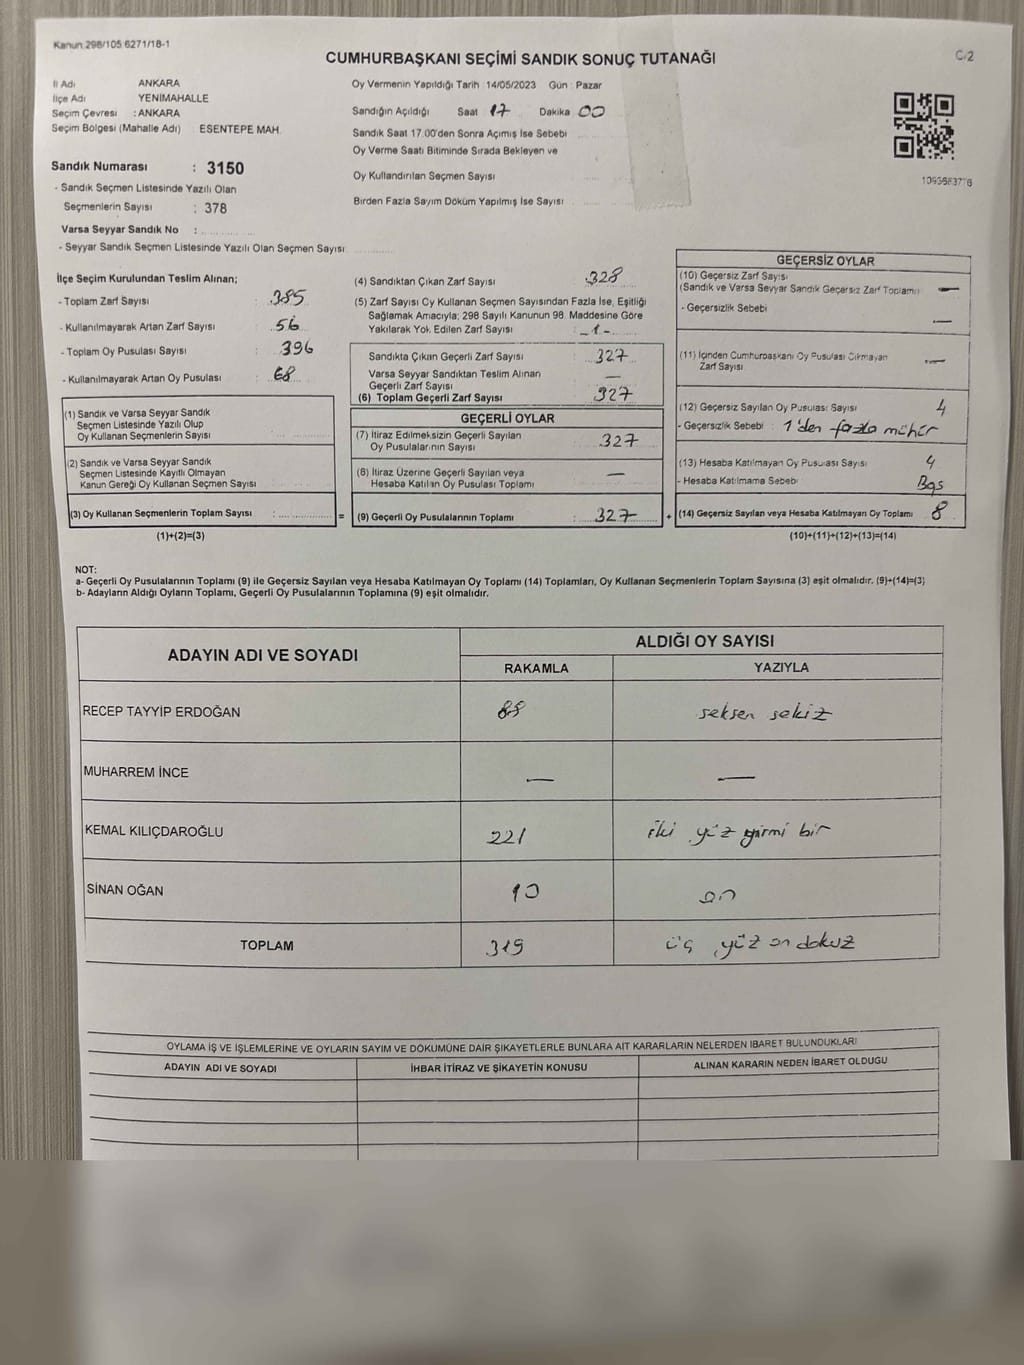 Kanun:298/105.6271/18-1
C/2
CUMHURBAŞKANI SEÇİMİ SANDIK SONUÇ TUTANAĞI
İl Adı ANKARA
İlçe Adı YENİMAHALLE
Seçim Çevresi : ANKARA
Seçim Bölgesi (Mahalle Adı) ESENTEPE MAH.
Sandık Numarası : 3150
- Sandık Seçmen Listesinde Yazılı Olan
Seçmenlerin Sayısı : 378
Varsa Seyyar Sandık No :
- Seyyar Sandık Seçmen Listesinde Yazılı Olan Seçmen Sayısı
Oy Vermenin Yapıldığı Tarih 14/05/2023 Gün : Pazar
Sandığın Açıldığı Saat 17 Dakika 00
Sandık Saat 17.00'den Sonra Açımış İse Sebebi
Oy Verme Saati Bitiminde Sırada Bekleyen ve
Oy Kullandırılan Seçmen Sayısı
Birden Fazla Sayım Döküm Yapılmış İse Sayısı
İlçe Seçim Kurulundan Teslim Alınan;
- Toplam Zarf Sayısı : 385
- Kullanılmayarak Artan Zarf Sayısı : 56
- Toplam Oy Pusulası Sayısı : 396
- Kullanılmayarak Artan Oy Pusulası : 68
(1) Sandık ve Varsa Seyyar Sandık
Seçmen Listesinde Yazılı Olup
Oy Kullanan Seçmenlerin Sayısı
(2) Sandık ve Varsa Seyyar Sandık
Seçmen Listesinde Kayıtlı Olmayan
Kanun Gereği Oy Kullanan Seçmen Sayısı
(3) Oy Kullanan Seçmenlerin Toplam Sayısı :
(1)+(2)=(3)
=
(4) Sandıktan Çıkan Zarf Sayısı : 328
(5) Zarf Sayısı Oy Kullanan Seçmen Sayısından Fazla İse, Eşitliği
Sağlamak Amacıyla; 298 Sayılı Kanunun 98. Maddesine Göre
Yakılarak Yok Edilen Zarf Sayısı : -1-
Sandıkta Çıkan Geçerli Zarf Sayısı : 327
Varsa Seyyar Sandıktan Teslim Alınan
Geçerli Zarf Sayısı : —
(6) Toplam Geçerli Zarf Sayısı : 327
GEÇERLİ OYLAR
(7) İtiraz Edilmeksizin Geçerli Sayılan
Oy Pusulalarının Sayısı : 327
(8) İtiraz Üzerine Geçerli Sayılan veya
Hesaba Katılan Oy Pusulası Toplamı : —
(9) Geçerli Oy Pusulalarının Toplamı : 327
+
GEÇERSİZ OYLAR
(10) Geçersiz Zarf Sayısı
(Sandık ve Varsa Seyyar Sandık Geçersiz Zarf Toplamı) —
- Geçersizlik Sebebi : —
(11) İçinden Cumhurbaşkanı Oy Pusulası Çıkmayan
Zarf Sayısı : —
(12) Geçersiz Sayılan Oy Pusulası Sayısı : 4
- Geçersizlik Sebebi : 1'den fazla mühür
(13) Hesaba Katılmayan Oy Pusulası Sayısı : 4
- Hesaba Katılmama Sebebi : Boş
(14) Geçersiz Sayılan veya Hesaba Katılmayan Oy Toplamı 8
(10)+(11)+(12)+(13)=(14)
NOT:
a- Geçerli Oy Pusulalarının Toplamı (9) ile Geçersiz Sayılan veya Hesaba Katılmayan Oy Toplamı (14) Toplamları, Oy Kullanan Seçmenlerin Toplam Sayısına (3) eşit olmalıdır. (9)+(14)=(3)
b- Adayların Aldığı Oyların Toplamı, Geçerli Oy Pusulalarının Toplamına (9) eşit olmalıdır.
ADAYIN ADI VE SOYADI
ALDIĞI OY SAYISI
RAKAMLA YAZIYLA
RECEP TAYYİP ERDOĞAN 88 seksen sekiz
MUHARREM İNCE — —
KEMAL KILIÇDAROĞLU 221 iki yüz yirmi bir
SİNAN OĞAN 10 on
TOPLAM 319 üç yüz on dokuz
OYLAMA İŞ VE İŞLEMLERİNE VE OYLARIN SAYIM VE DÖKÜMÜNE DAİR ŞİKAYETLERLE BUNLARA AİT KARARLARIN NELERDEN İBARET BULUNDUKLARI
ADAYIN ADI VE SOYADI İHBAR İTİRAZ VE ŞİKAYETİN KONUSU ALINAN KARARIN NEDEN İBARET OLDUĞU